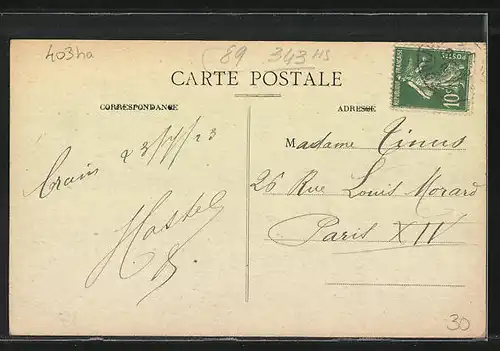 403ha
89 343 HS
CARTE POSTALE
CORRESPONDANCE
ADRESSE
POSTES
REPUBLIQUE FRANÇAISE
10c
Crain 23/7/23
Hastel
Madame Tinus
26 Rue Louis Morard
Paris XIV
30